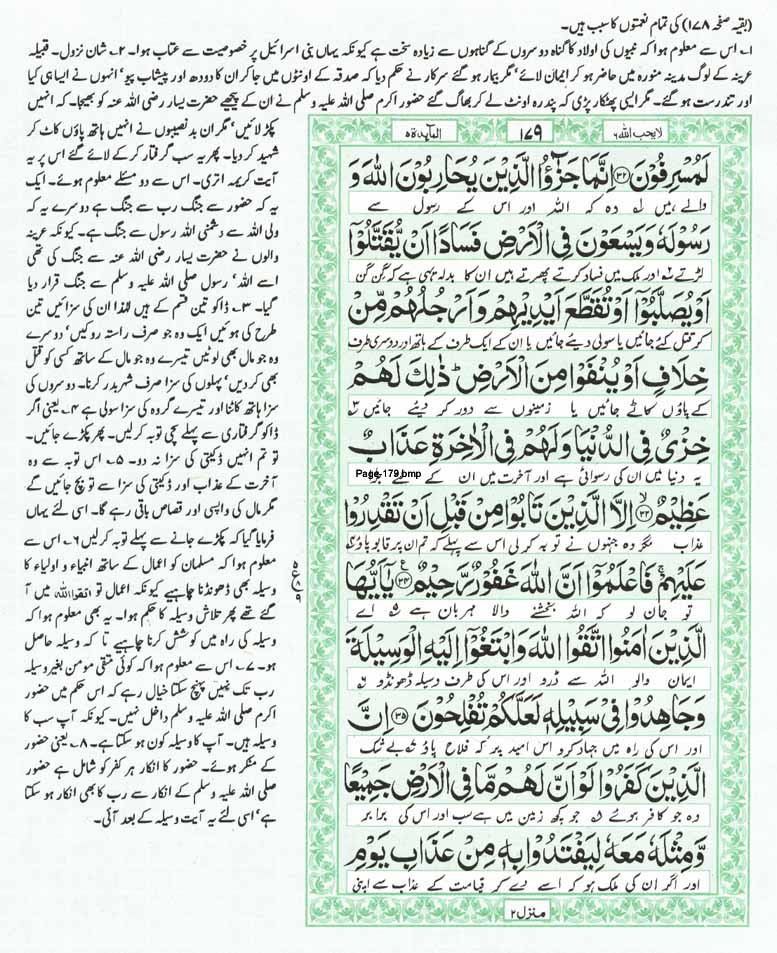 (بقیہ صفحہ ۱۷۸) کی تمام نعمتوں کا سبب ہیں۔
۱۔ اس سے معلوم ہوا کہ نبیوں کی اولاد کا گناہ دوسروں کے گناہوں سے زیادہ سخت ہے کیونکہ یہاں بنی اسرائیل پر خصوصیت سے عتاب ہوا۔ ۲۔ شان نزول۔ قبیلہ
عرینہ کے لوگ مدینہ منورہ میں حاضر ہو کر ایمان لائے' مگر بیمار ہو گئے سرکار نے حکم دیا کہ صدقہ کے اونٹوں میں جا کر ان کا دودھ اور پیشاب پیو' انہوں نے ایسا ہی کیا
اور تندرست ہو گئے۔ مگر ایسی پھٹکار پڑی کہ پندرہ اونٹ لے کر بھاگ گئے حضور اکرم صلی اللہ علیہ وسلم نے ان کے پیچھے حضرت یسار رضی اللہ عنہ کو بھیجا۔ کہ انہیں
لا یحب اللہ ۶
۱۷۹
المآىِٕدة ۵
لَمُسْرِفُوْنَ ﴿۳۲﴾ اِنَّمَا جَزٰٓؤُا الَّذِیْنَ یُحَارِبُوْنَ اللّٰهَ وَ
والے ہیں وہ کہ اللہ اور اس کے رسول سے
رَسُوْلَهٗ وَیَسْعَوْنَ فِی الْاَرْضِ فَسَادًا اَنْ یُّقَتَّلُوْۤا
لڑتے ۲ اور ملک میں فساد کرتے پھرتے ہیں ان کا بدلہ یہی ہے کہ گن گن
اَوْ یُصَلَّبُوْۤا اَوْ تُقَطَّعَ اَیْدِیْهِمْ وَاَرْجُلُهُمْ مِّنْ
کر قتل کئے جائیں یا سولی دیئے جائیں یا ان کے ایک طرف کے ہاتھ اور دوسری طرف
خِلَافٍ اَوْ یُنْفَوْا مِنَ الْاَرْضِ ؕ ذٰلِكَ لَهُمْ
کے پاؤں کاٹے جائیں یا زمینوں سے دور کر دیئے جائیں ۳
خِزْیٌ فِی الدُّنْیَا وَلَهُمْ فِی الْاٰخِرَةِ عَذَابٌ
یہ دنیا میں ان کی رسوائی ہے اور آخرت میں ان کے لئے بڑا
Page-179.bmp
عَظِیْمٌ ﴿۳۳﴾ اِلَّا الَّذِیْنَ تَابُوْا مِنْ قَبْلِ اَنْ تَقْدِرُوْا
عذاب مگر وہ جنہوں نے توبہ کر لی اس سے پہلے کہ تم ان پر قابو پاؤ
عَلَیْهِمْ ۚ فَاعْلَمُوْۤا اَنَّ اللّٰهَ غَفُوْرٌ رَّحِیْمٌ ﴿۳۴﴾ یٰۤاَیُّهَا
تو جان لو کہ اللہ بخشنے والا مہربان ہے ۵ اے
الَّذِیْنَ اٰمَنُوا اتَّقُوا اللّٰهَ وَابْتَغُوْۤا اِلَیْهِ الْوَسِیْلَةَ
ایمان والو اللہ سے ڈرو اور اس کی طرف وسیلہ ڈھونڈو
وَجَاهِدُوْا فِیْ سَبِیْلِهٖ لَعَلَّكُمْ تُفْلِحُوْنَ ﴿۳۵﴾ اِنَّ
اور اس کی راہ میں جہاد کرو اس امید پر کہ فلاح پاؤ بے شک
الَّذِیْنَ كَفَرُوْا لَوْ اَنَّ لَهُمْ مَّا فِی الْاَرْضِ جَمِیْعًا
وہ جو کافر ہوئے جو کچھ زمین میں ہے سب اور اس کی برابر
وَّمِثْلَهٗ مَعَهٗ لِیَفْتَدُوْا بِهٖ مِنْ عَذَابِ یَوْمِ
اور اگر ان کی ملک ہو کہ اسے دے کر قیامت کے عذاب سے اپنی
منزل ۲
پکڑ لائیں' مگر ان بدنصیبوں نے انہیں ہاتھ پاؤں کاٹ کر
شہید کر دیا۔ پھر یہ سب گرفتار کر کے لائے گئے اس پر یہ
آیت کریمہ اتری۔ اس سے دو مسئلے معلوم ہوئے۔ ایک
یہ کہ حضور سے جنگ رب سے جنگ ہے دوسرے یہ کہ
ولی اللہ سے دشمنی اللہ رسول سے جنگ ہے۔ کیونکہ عرینہ
والوں نے حضرت یسار رضی اللہ عنہ سے جنگ کی تھی
اسے اللہ' رسول صلی اللہ علیہ وسلم سے جنگ قرار دیا
گیا۔ ۳۔ ڈاکو تین قسم کے ہیں لہٰذا ان کی سزائیں تین
طرح کی ہوئیں ایک وہ جو صرف راستہ روکیں' دوسرے
وہ جو مال بھی لوٹیں تیسرے وہ جو مال کے ساتھ کسی کو قتل
بھی کر دیں' پہلوں کی سزا صرف شہر بدر کرنا۔ دوسروں کی
سزا ہاتھ کاٹنا اور تیسرے گروہ کی سزا سولی ہے ۴۔ یعنی اگر
ڈاکو گرفتاری سے پہلے سچی توبہ کر لیں۔ پھر پکڑے جائیں۔
تو تم انہیں ڈکیتی کی سزا نہ دو۔ ۵۔ اس توبہ سے وہ
آخرت کے عذاب اور ڈکیتی کی سزا سے تو بچ جائیں گے
مگر مال کی واپسی اور قصاص باقی رہے گا۔ اسی لئے یہاں
فرمایا گیا کہ پکڑے جانے سے پہلے توبہ کر لیں ۶۔ اس سے
معلوم ہوا کہ مسلمان کو اعمال کے ساتھ انبیاء و اولیاء کا
وسیلہ بھی ڈھونڈنا چاہیے کیونکہ اعمال تو اتقوا اللہ میں آ
گئے تھے پھر تلاش وسیلہ کا حکم ہوا۔ یہ بھی معلوم ہوا کہ
وسیلہ کی راہ میں کوشش کرنا چاہیے تا کہ وسیلہ حاصل
ہو۔ ۷۔ اس سے معلوم ہوا کہ کوئی متقی مومن بغیر وسیلہ
رب تک نہیں پہنچ سکتا خیال رہے کہ اس حکم میں حضور
اکرم صلی اللہ علیہ وسلم داخل نہیں۔ کیونکہ آپ سب کا
وسیلہ ہیں۔ آپ کا وسیلہ کون ہو سکتا ہے۔ ۸۔ یعنی حضور
کے منکر ہوئے۔ حضور کا انکار ہر کفر کو شامل ہے حضور
صلی اللہ علیہ وسلم کے انکار سے رب کا بھی انکار ہو سکتا
ہے' اسی لئے یہ آیت وسیلہ کے بعد آئی۔